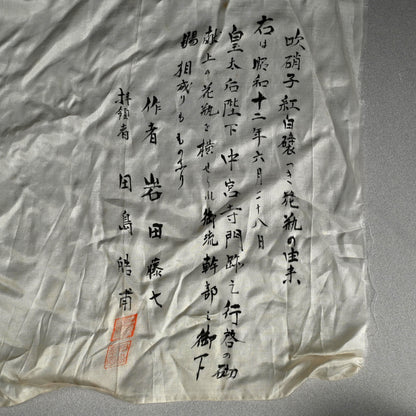 吹硝子紅白礟つき花瓶の由来
右は昭和十二年六月二十八日
皇太后陛下中宮寺門跡え行啓の砌
献上の花瓶を模せられ御流幹部え御下
賜相成りたものなり
作者 岩田藤七
拝領者 田島皓甫